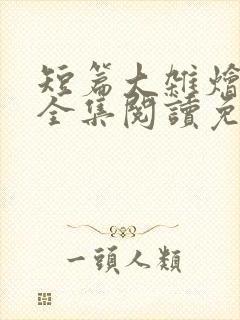 短篇大雜燴
全集閱讀免
一頭人類